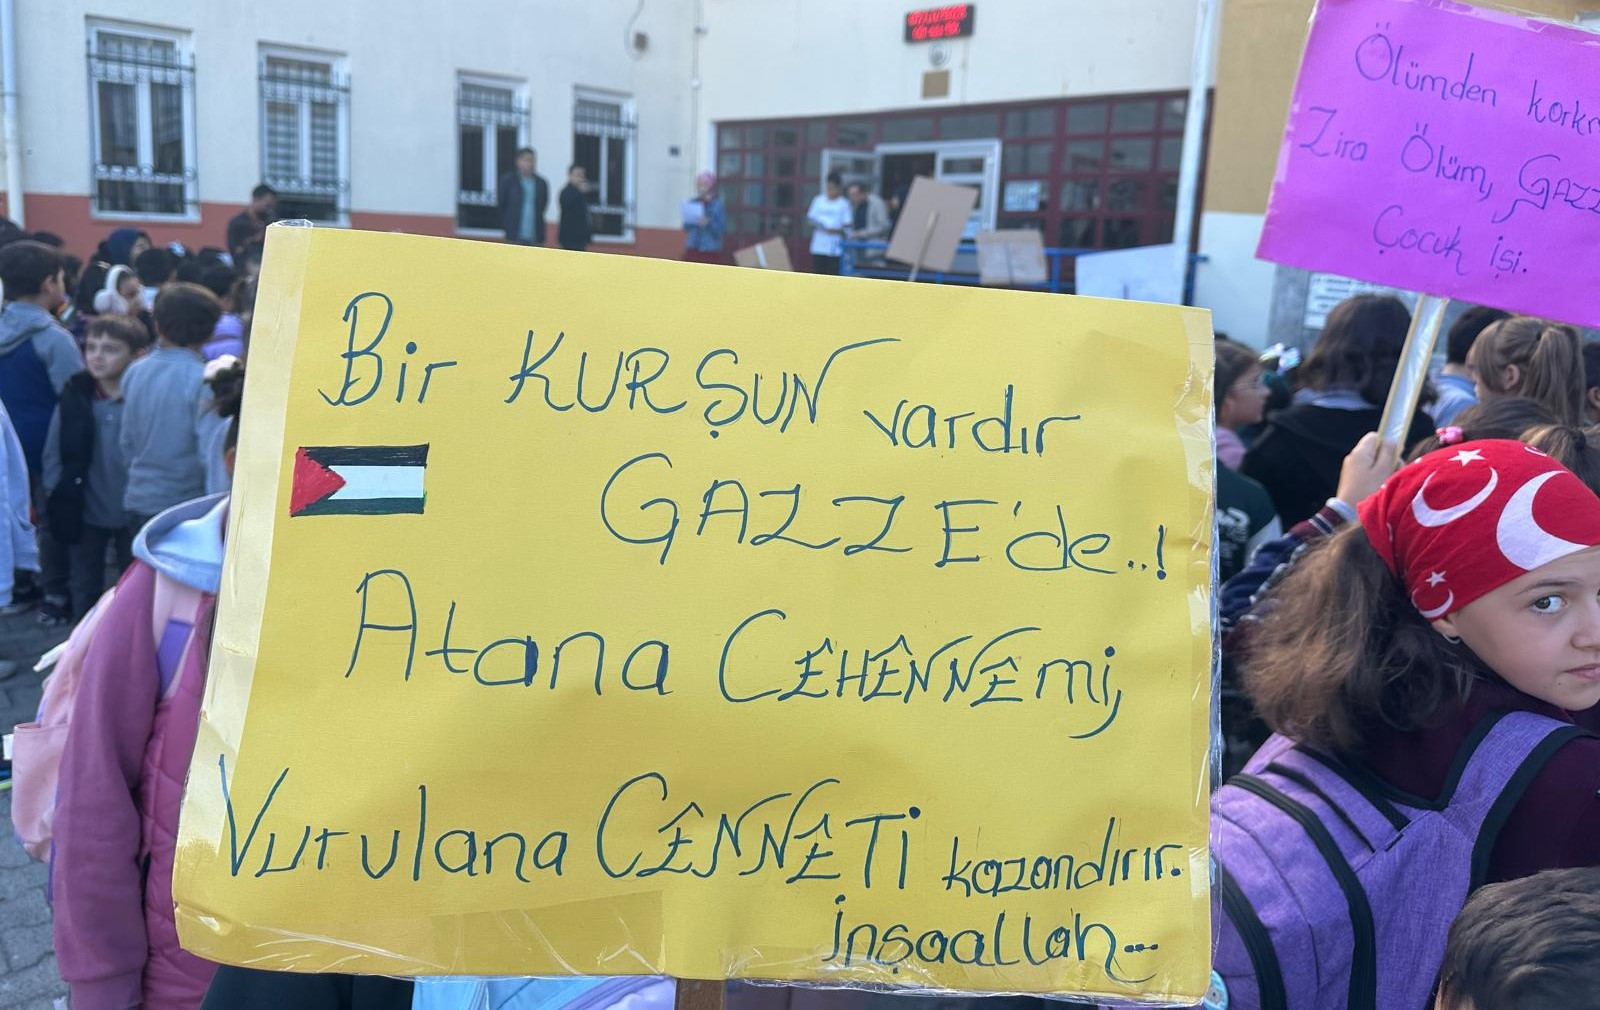 Bir KURŞUN vardır
GAZZE'de..!
Atana CÊHÊNNÊmi,
Vurulana CÊNNÊTi kazandırır.
İnşaallah...
Ölümden
Zira Ölüm,
Çocuk işi.